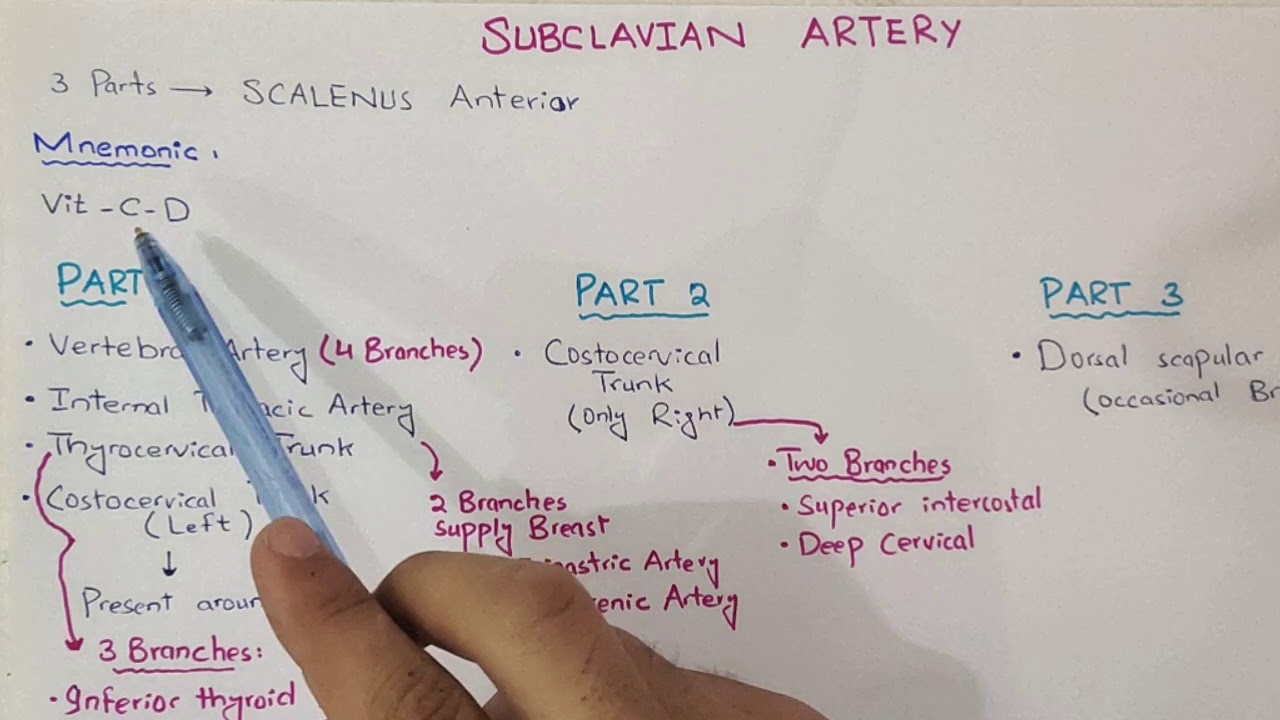 SUBCLAVIAN ARTERY
3 Parts → SCALENUS Anterior
Mnemonic.
Vit - C - D
PART
• Vertebra Artery (4 Branches)
• Internal acic Artery
• Thyrocervical Trunk
• Costocervical
(Left)
↓
Present
3 Branches:
• Inferior thyroid
2 Branches
supply Breast
Artery
Artery
PART 2
• Costocervical
Trunk
(Only Right)
• Two Branches
• Superior intercostal
• Deep Cervical
PART 3
• Dorsal scapular
(occasional